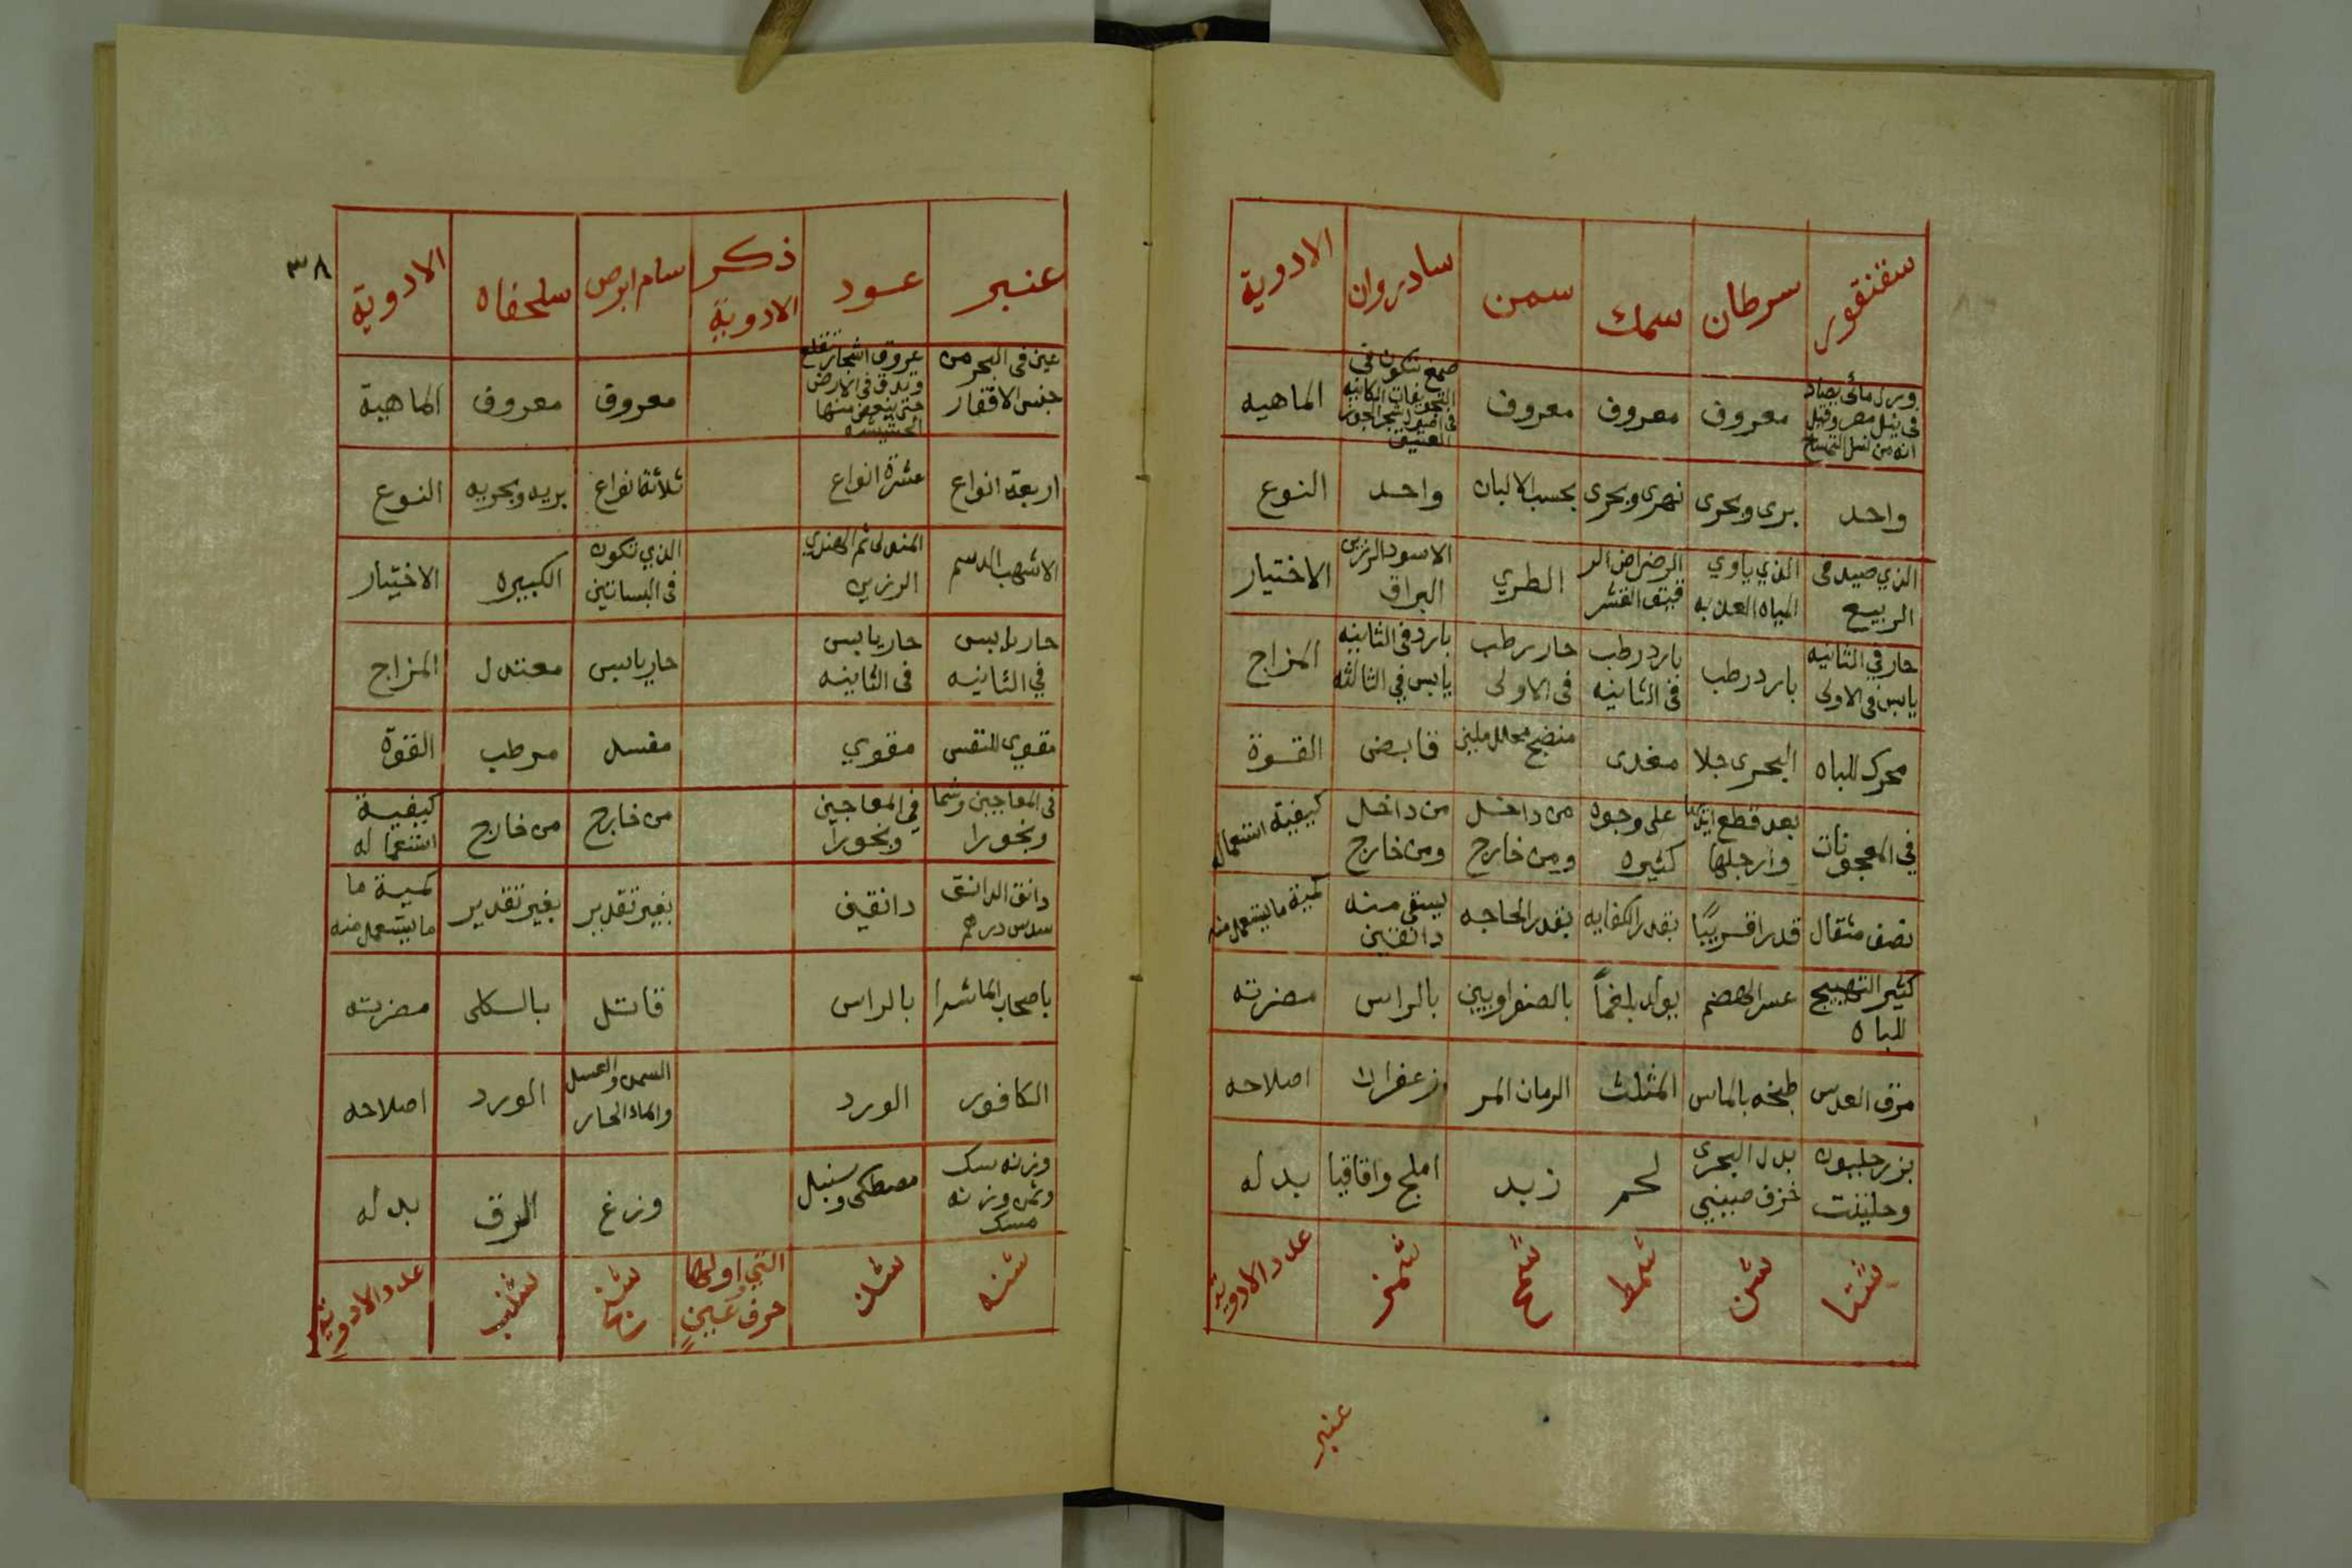 سقنقور سرطان سمك سمن سادروان الادوية
ورل مائى يصاد فى نيل مصر وقيل انه من نسل التمساح معروف معروف معروف صمغ تتكون فى التجويفات الكائنه فى اصول شجر الجوز العتيق الماهيه
واحد برى وبحرى نهرى وبحرى بحسب الالبان واحد النوع
الذي صيد فى الربيع الذي ياوي المياه العذبه الرضراضى الرقيق القشر الطري الاسود الرزين البراق الاختيار
حار في الثانيه يابس فى الاولى بارد رطب بارد رطب فى الثانيه حار رطب فى الاولى بارد فى الثانيه يابس في الثالثه المزاج
محرك للباه البحرى جلا مغدى منضج محلل ملين قابض القوة
في المعجونات بعد قطع ايديها وارجلها على وجوه كثيره من داخل ومن خارج من داخل ومن خارج كيفية استعماله
نصف مثقال قدرا قريبًا بقدر الكفايه بقدر الحاجه يسقى منه دانقين كمية ما يستعمل منه
كثير التهييج للباه عسر الهضم يولد بلغماً بالصفراويين بالراس مضرته
مرق العدس طبخه بالماس المثلث الرمان المر زعفران اصلاحه
بزر جلبوه وحليثت بدل البحرى خزف صينيي لحم زبد املج واقاقيا بدله
شنا شن شمط شمح شمز عدد الادوية
عنبر
٣٨
عنبر عود ذكر الادوية سام ابرص سلحفاه الادوية
عين فى البحر من جنس الاقفار عروق اشجار تقلع وتدق فى الارض حتى يتعفن منها الخشبيه معروف معروف الماهية
اربعة انواع عشرة انواع ثلاثة انواع بريه وبحريه النوع
الاشهب الدسم المندلى ثم الهندي الرزين الذي تكون فى البساتين الكبيره الاختيار
حار يابس في الثانيه حار يابس فى الثانيه حار يابس معتدل المزاج
مقوي للنفس مقوي مفسد مرطب القوة
فى المعاجين وشما وبخورا في المعاجين وبخوراً من خارج من خارج كيفية استعماله
دانق الدانق سدس درهم دانقين بغير تقدير بغير تقدير كمية ما ما يستعمل منه
باصحاب الماشرا بالراس قاتل بالكلى مضرته
الكافور الورد السمن والعسل والماء الحار الورد اصلاحه
وزنه سك وثمن وزنه مسك مصطكى وسنبل وزغ الرق بدله
شنه شند التي اولها حرف عينٍ شنج شنب عدد الادوية